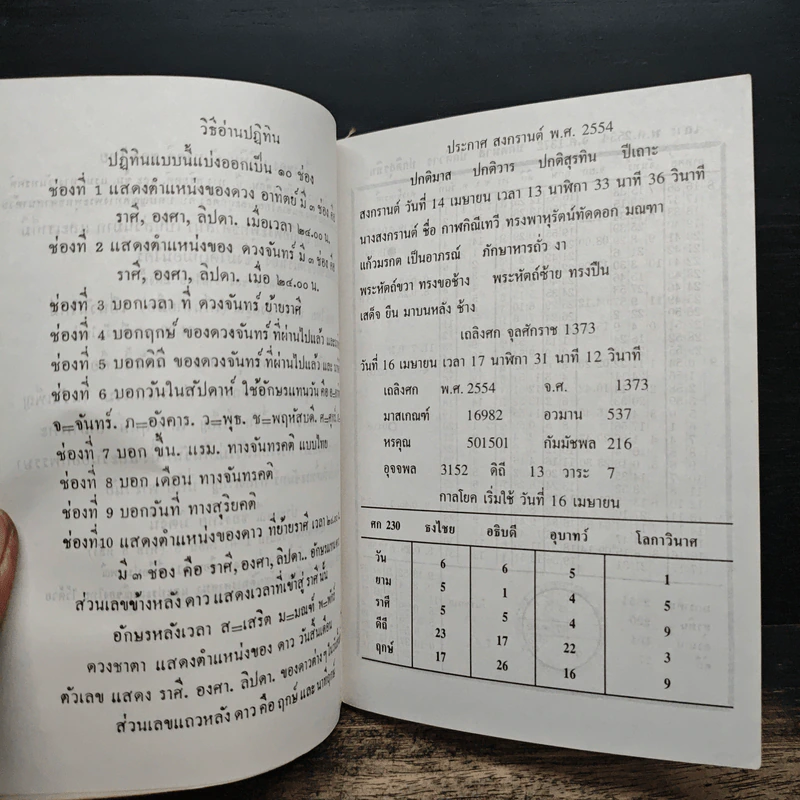 วิธีอ่านปฏิทิน
ปฏิทินแบบนี้แบ่งออกเป็น ๑๐ ช่อง
ช่องที่ 1 แสดงตำแหน่งของดวง อาทิตย์ มี ๓ ช่อง คือ
ราศี, องศา, ลิปดา. เมื่อเวลา ๒๔.๐๐ น.
ช่องที่ 2 แสดงตำแหน่งของ ดวงจันทร์ มี ๓ ช่อง คือ
ราศี, องศา, ลิปดา. เมื่อ ๒๔.๐๐ น.
ช่องที่ 3 บอกเวลา ที่ ดวงจันทร์ ย้ายราศี
ช่องที่ 4 บอกฤกษ์ ของดวงจันทร์ ที่ผ่านไปแล้ว
ช่องที่ 5 บอกดิถี ของดวงจันทร์ ที่ผ่านไปแล้ว และ
ช่องที่ 6 บอกวันในสัปดาห์ ใช้อักษรแทนวัน คือ
จ=จันทร์. ภ=อังคาร. ว=พุธ. ช=พฤหัสบดี.
ช่องที่ 7 บอก ขึ้น. แรม. ทางจันทรคติ แบบไทย
ช่องที่ 8 บอก เดือน ทางจันทรคติ
ช่องที่ 9 บอกวันที่ ทางสุริยคติ
ช่องที่10 แสดงตำแหน่งของดาว ที่ย้ายราศี เวลา
มี ๓ ช่อง คือ ราศี, องศา, ลิปดา..
ส่วนเลขข้างหลัง ดาว แสดงเวลาที่เข้าสู่ ราศี นั้น
อักษรหลังเวลา ส=เสริต ม=มณฑ์
ดวงชาตา แสดงตำแหน่งของ ดาว วันสิ้นเดือน
ตัวเลข แสดง ราศี. องศา. ลิปดา. ของดาวต่างๆ
ส่วนเลขแถวหลัง ดาว คือ ฤกษ์ และ นาทีฤกษ์
ประกาศ สงกรานต์ พ.ศ. 2554
ปกติมาส ปกติวาร ปกติสุรทิน ปีเถาะ
สงกรานต์ วันที่ 14 เมษายน เวลา 13 นาฬิกา 33 นาที 36 วินาที
นางสงกรานต์ ชื่อ กาฬกิณีเทวี ทรงพาหุรัตน์ทัดดอก มณฑา
แก้วมรกต เป็นอาภรณ์ ภักษาหารถั่ว งา
พระหัตถ์ขวา ทรงขอช้าง พระหัตถ์ซ้าย ทรงปืน
เสด็จ ยืน มาบนหลัง ช้าง
เถลิงศก จุลศักราช 1373
วันที่ 16 เมษายน เวลา 17 นาฬิกา 31 นาที 12 วินาที
เถลิงศก พ.ศ. 2554 จ.ศ. 1373
มาสเกณฑ์ 16982 อวมาน 537
หรคุณ 501501 กัมมัชพล 216
อุจจพล 3152 ดิถี 13 วาระ 7
กาลโยค เริ่มใช้ วันที่ 16 เมษายน
ศก 230 ธงไชย อธิบดี อุบาทว์ โลกาวินาศ
วัน 6 6 5 1
ยาม 5 1 4 5
ราศี 5 5 4 9
ดิถี 23 17 22 3
ฤกษ์ 17 26 16 9